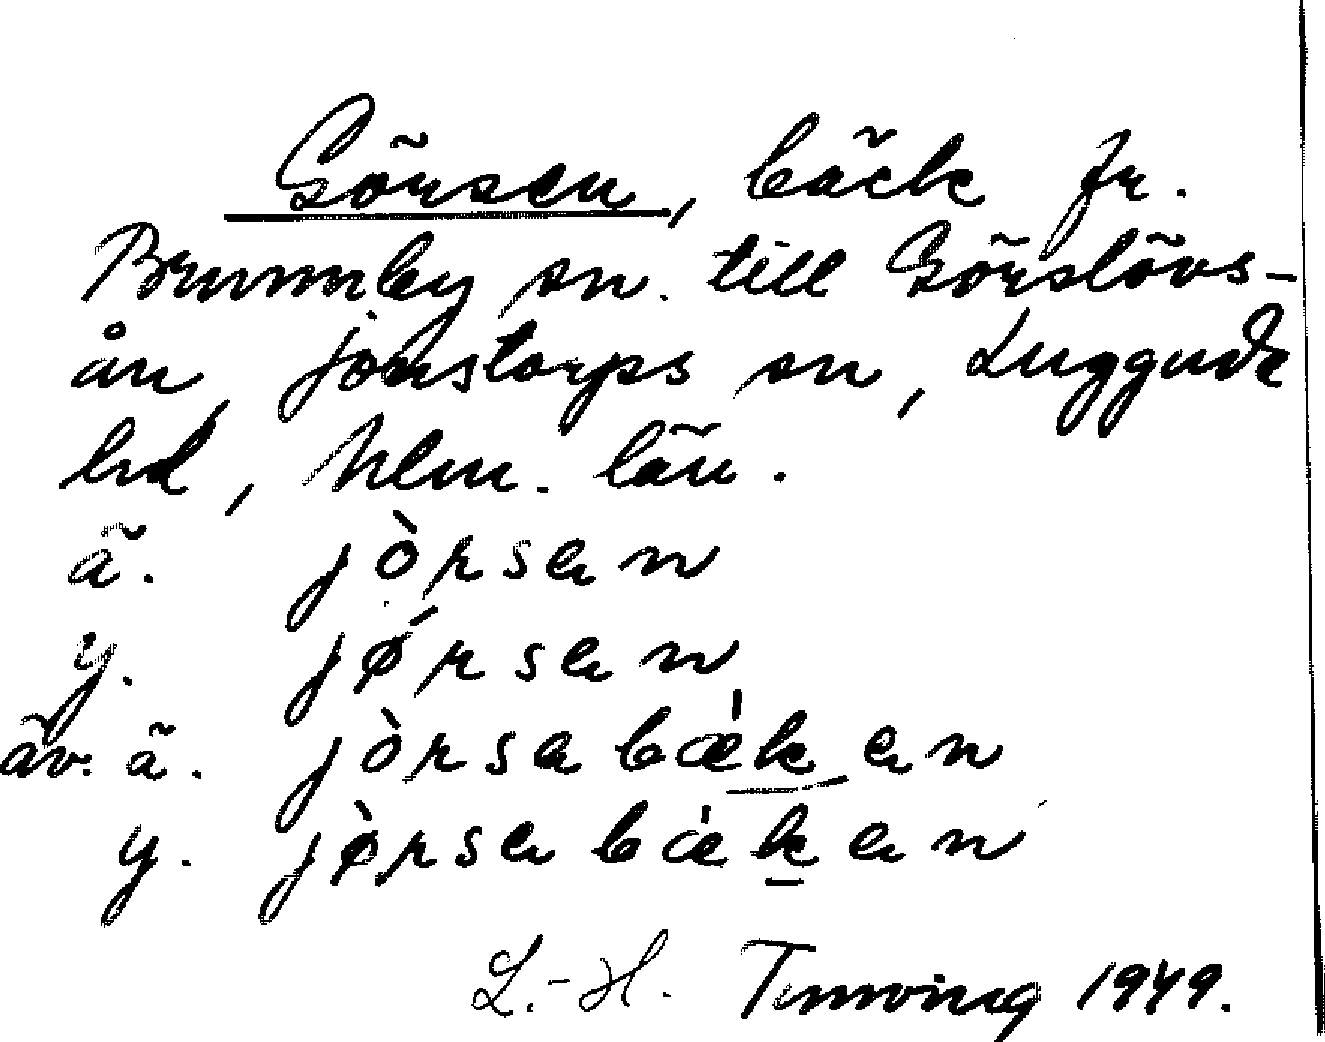 Görsen, bäck fr.
Brunnby sn. till Görslövs-
ån, Jonstorps sn, Luggude
hd, Mlm. län.
ä. jòrsen
y. jǿrsen
äv. ä. jòrsabæ̀ken
y. jø̀rsebæ̀ken
L.-H. 1949.